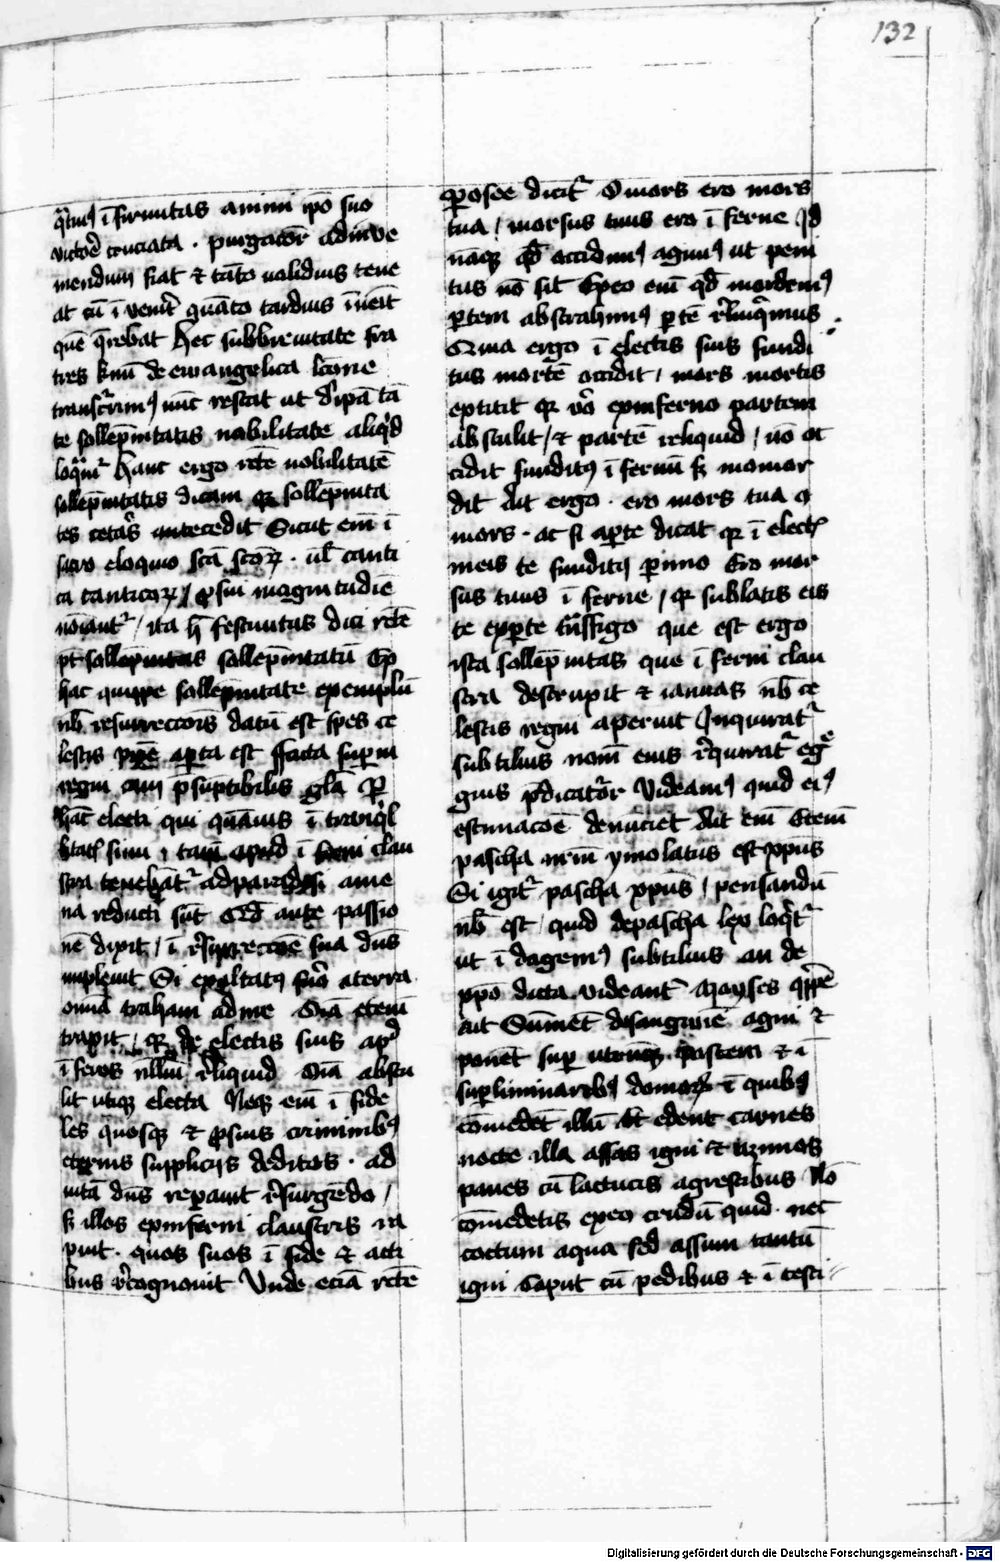 132
infirmitas animi ipō suo
cruciata . purgatōr adinve
mendum fiat & tāto ualidius tene
at cū ī venit quāto tardius īneīt
quē q̄rebat Hec subbreuitate fra
tres kmī de ewangelica lcōne
nūc restat ut dipā tā
te sollēpnitatis nobilitate aliqd
Hanc ergo rcte nobilitatē
sollēpnitatis dicam qr sollēpnita
tes cetās antecedit Sicut em̄ ī
sacro eloquio scā scōꝝ . ul canti
ca canticoꝝ / ꝓ sui magnitudīe
nōiantr / ita h̄ festiuitas dici rcte
pt sollēpnitas sollēpnitatū Ex
hac quippe sollēpnitate exemplū
nb̄ resurrectōis datū est spes ce
lestis aꝑta est ffacta suꝑni
regni p̄sūptibilis glā P
hāc electi qui quāuis ī trāqil
sinu tamē apud ī ferni clau
stra tenebātr ad paradysi ame
na reducti sūt Qd̄ ante passio
nē dixit / ī rsurrectōe sua dn̄s
impleuit Si exaltatꝰ fuo aterra
omīa traham adme Oīa etem̄
traxit / qr de electis suis apd
īferos nllm̄ rliquid Oīa abstu
lit utiqꝫ electa Neqꝫ em̄ ī fide
les quosqꝫ & ꝓ suis criminibꝰ
eternis supplicijs deditos . ad
uitā dn̄s reparauit rsurgēdo /
ꝫ illos exinferni claustris ra
puit . quos suos ī fide & acti
bus rcognouit Vnde eciā rcte
ꝑ osee dicitr O mors ero mors
tua / morsus tuus ero ī ferne Id
nāqꝫ qd̄ occidimꝰ agimꝰ ut peni
tus nō sit Exeo em̄ qd̄ mordemꝰ
ꝑtem abstrahimꝰ ꝑtē rlinqimus
Quia ergo ī electis suis fundi
tus mortē occidit / mors mortis
extitit qr vō exinferno partem
abstulit / & partē reliquid / nō oc
cidit funditꝰ ī fernū ꝫ momor
dit Ait ergo . ero mors tua o
mors . ac si aꝑte dicat qr ī elect
meis te funditꝰ ꝑimo Ero mor
sus tuus ī ferne / qr sublatis eis
te exꝑte tn̄sfigo que est ergo
ista sollēpnitas que ī ferni clau
stra destruxit & ianuas nb̄ ce
lestis regni aperuit Inquiratr
subtilius nom̄ eius rquiratr eg
gius p̄dicatōr Videamꝰ quid eiꝰ
estimacōē denūciet Ait em̄ Etem̄
pascha nrm̄ ymolatus est xp̄us
Si igitr pascha xp̄us / pensandū
nb̄ est / quid depascha lex loqitr
ut ī dagemꝰ subtilius an de
xpō dicta videantr Moyses qppe
ait Sūmēt desanguīe agni &
ponēt suꝑ utrūqꝫ postem & ī
suꝑliminaribꝰ domoꝝ ī quibꝰ
cōmedēt illū Et edent carnes
nocte illa assas igni & azimos
panes cū lactucis agrestibus Nō
cōmedetis exeo crudū quid . nec
coctum aqua sed assum tantū
igni Caput cū pedibus & ī testi
Digitalisierung gefördert durch die Deutsche Forschungsgemeinschaft - DFG